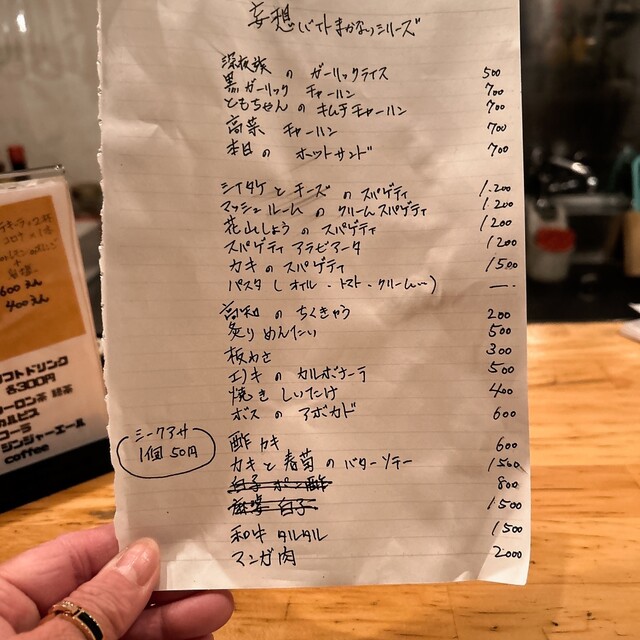 妄想バイトまかないシリーズ
深夜族 の ガーリックライス 500
黒ガーリック チャーハン 700
ともちゃんの キムチチャーハン 700
高菜 チャーハン 700
本日の ホットサンド 700
シイタケとチーズ の スパゲティ 1.200
マッシュルーム の クリームスパゲティ 1200
花山しょうの スパゲティ 1200
スパゲティ アラビアータ 1200
カキのスパゲティ 1500
パスタ (オイル・トマト・クリーム…) ー.
高知の ちくきゅう 200
炙り めんたい 500
板わさ 300
エノキ の カルボナーラ 500
焼き しいたけ 400
ボスの アボカド 600
シークアサ
1個 50円
酢カキ 600
カキと春菊のバターソテー 1500
白子 ポン酢 800
麻婆 白子 1500
和牛 タルタル 1500
マンガ肉 2000
600えん
400えん
ソフトドリンク
各300円
ウーロン茶 緑茶
カルピス
コーラ
ジンジャーエール
coffee